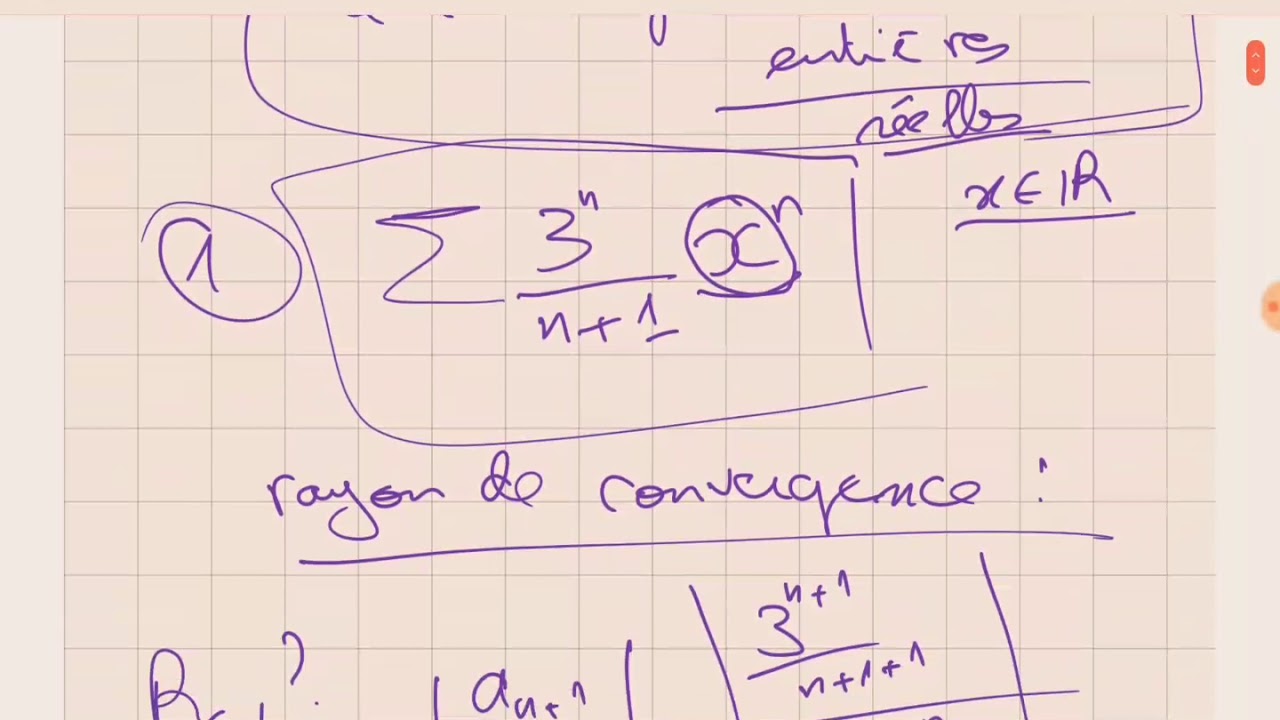 entières
réelles
x ∈ ℝ
1
∑ 3^n/(n+1) x^n
rayon de convergence :
3^(n+1)/(n+1+1)
R ?
|a_(n+1)|